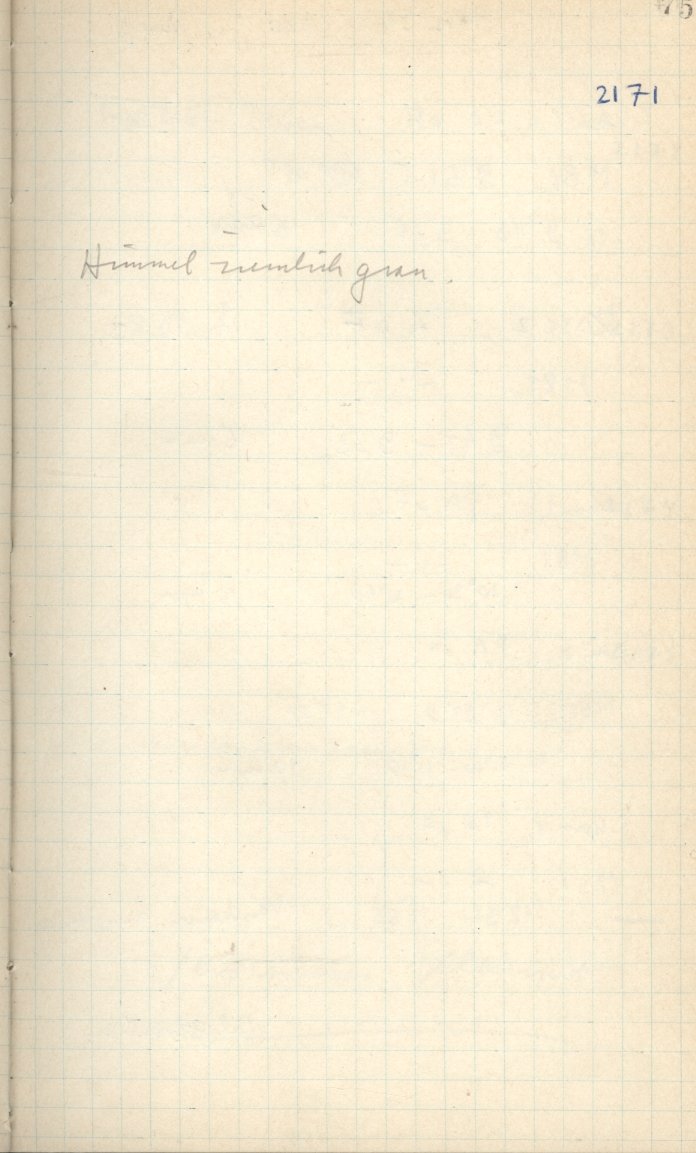 75
2171
Himmel ziemlich grau.